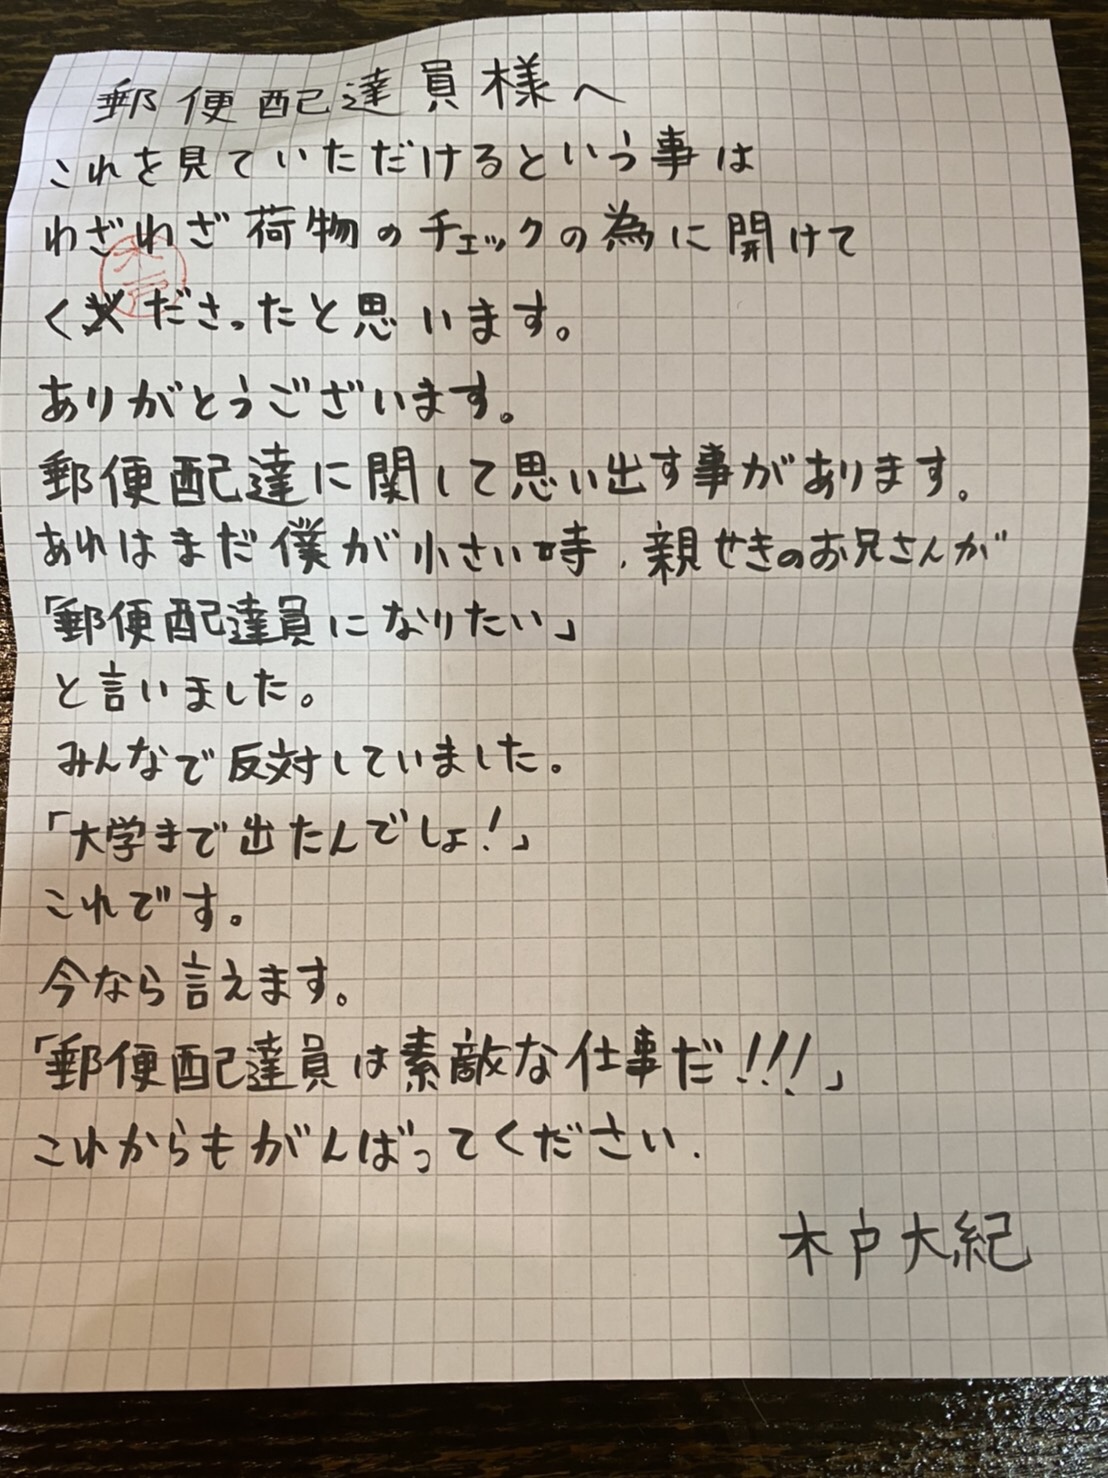 郵便配達員様へ
これを見ていただけるという事は
わざわざ荷物のチェックの為に開けて
くださったと思います。
木戸
ありがとうございます。
郵便配達に関して思い出す事があります。
あれはまだ僕が小さい時、親せきのお兄さんが
「郵便配達員になりたい」
と言いました。
みんなで反対していました。
「大学まで出たんでしょ!」
これです。
今なら言えます。
「郵便配達員は素敵な仕事だ!!!」
これからもがんばってください.
木戸大紀